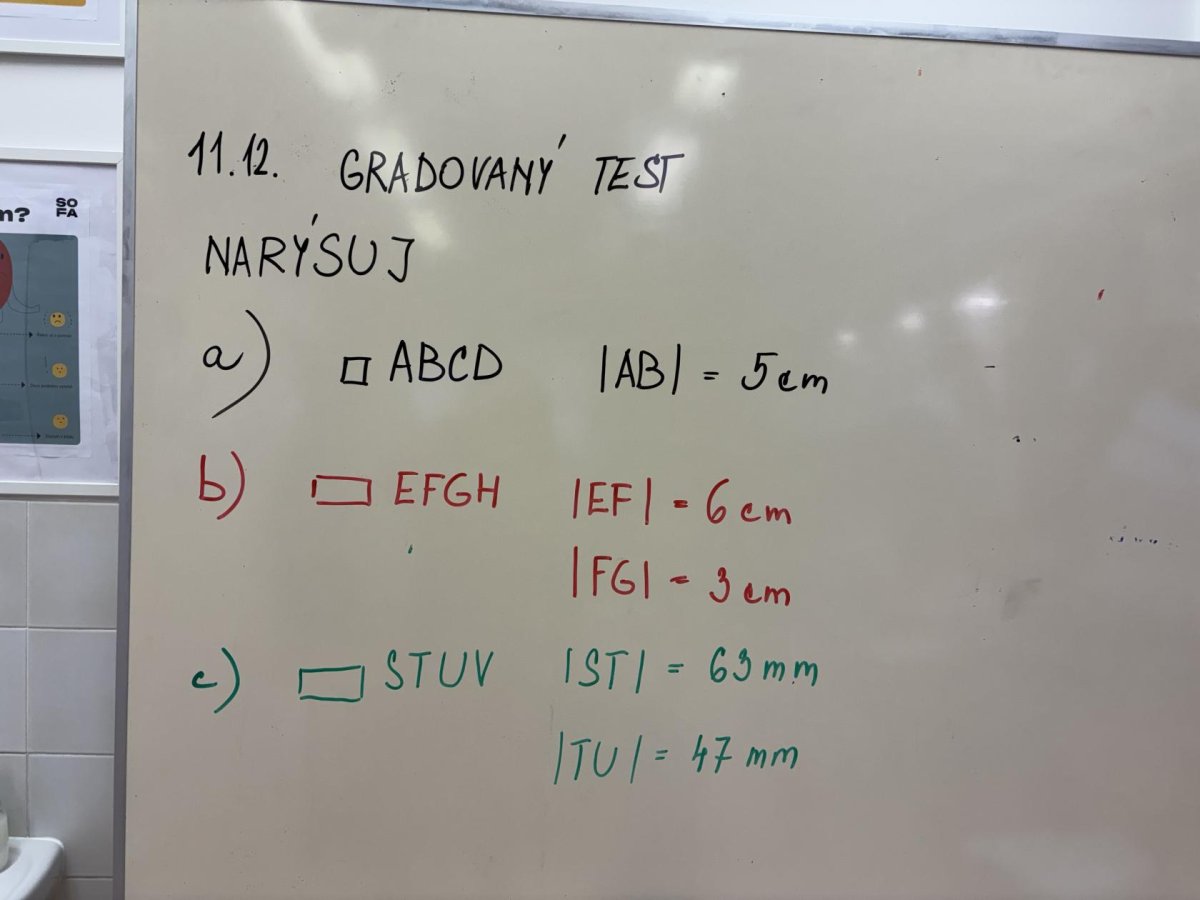 11.12. GRADOVANÝ TEST
NARÝSUJ
a) □ ABCD |AB| = 5 cm
b) ▭ EFGH |EF| = 6 cm
|FG| = 3 cm
c) ▭ STUV |ST| = 63 mm
|TU| = 47 mm
m?
SO
FA